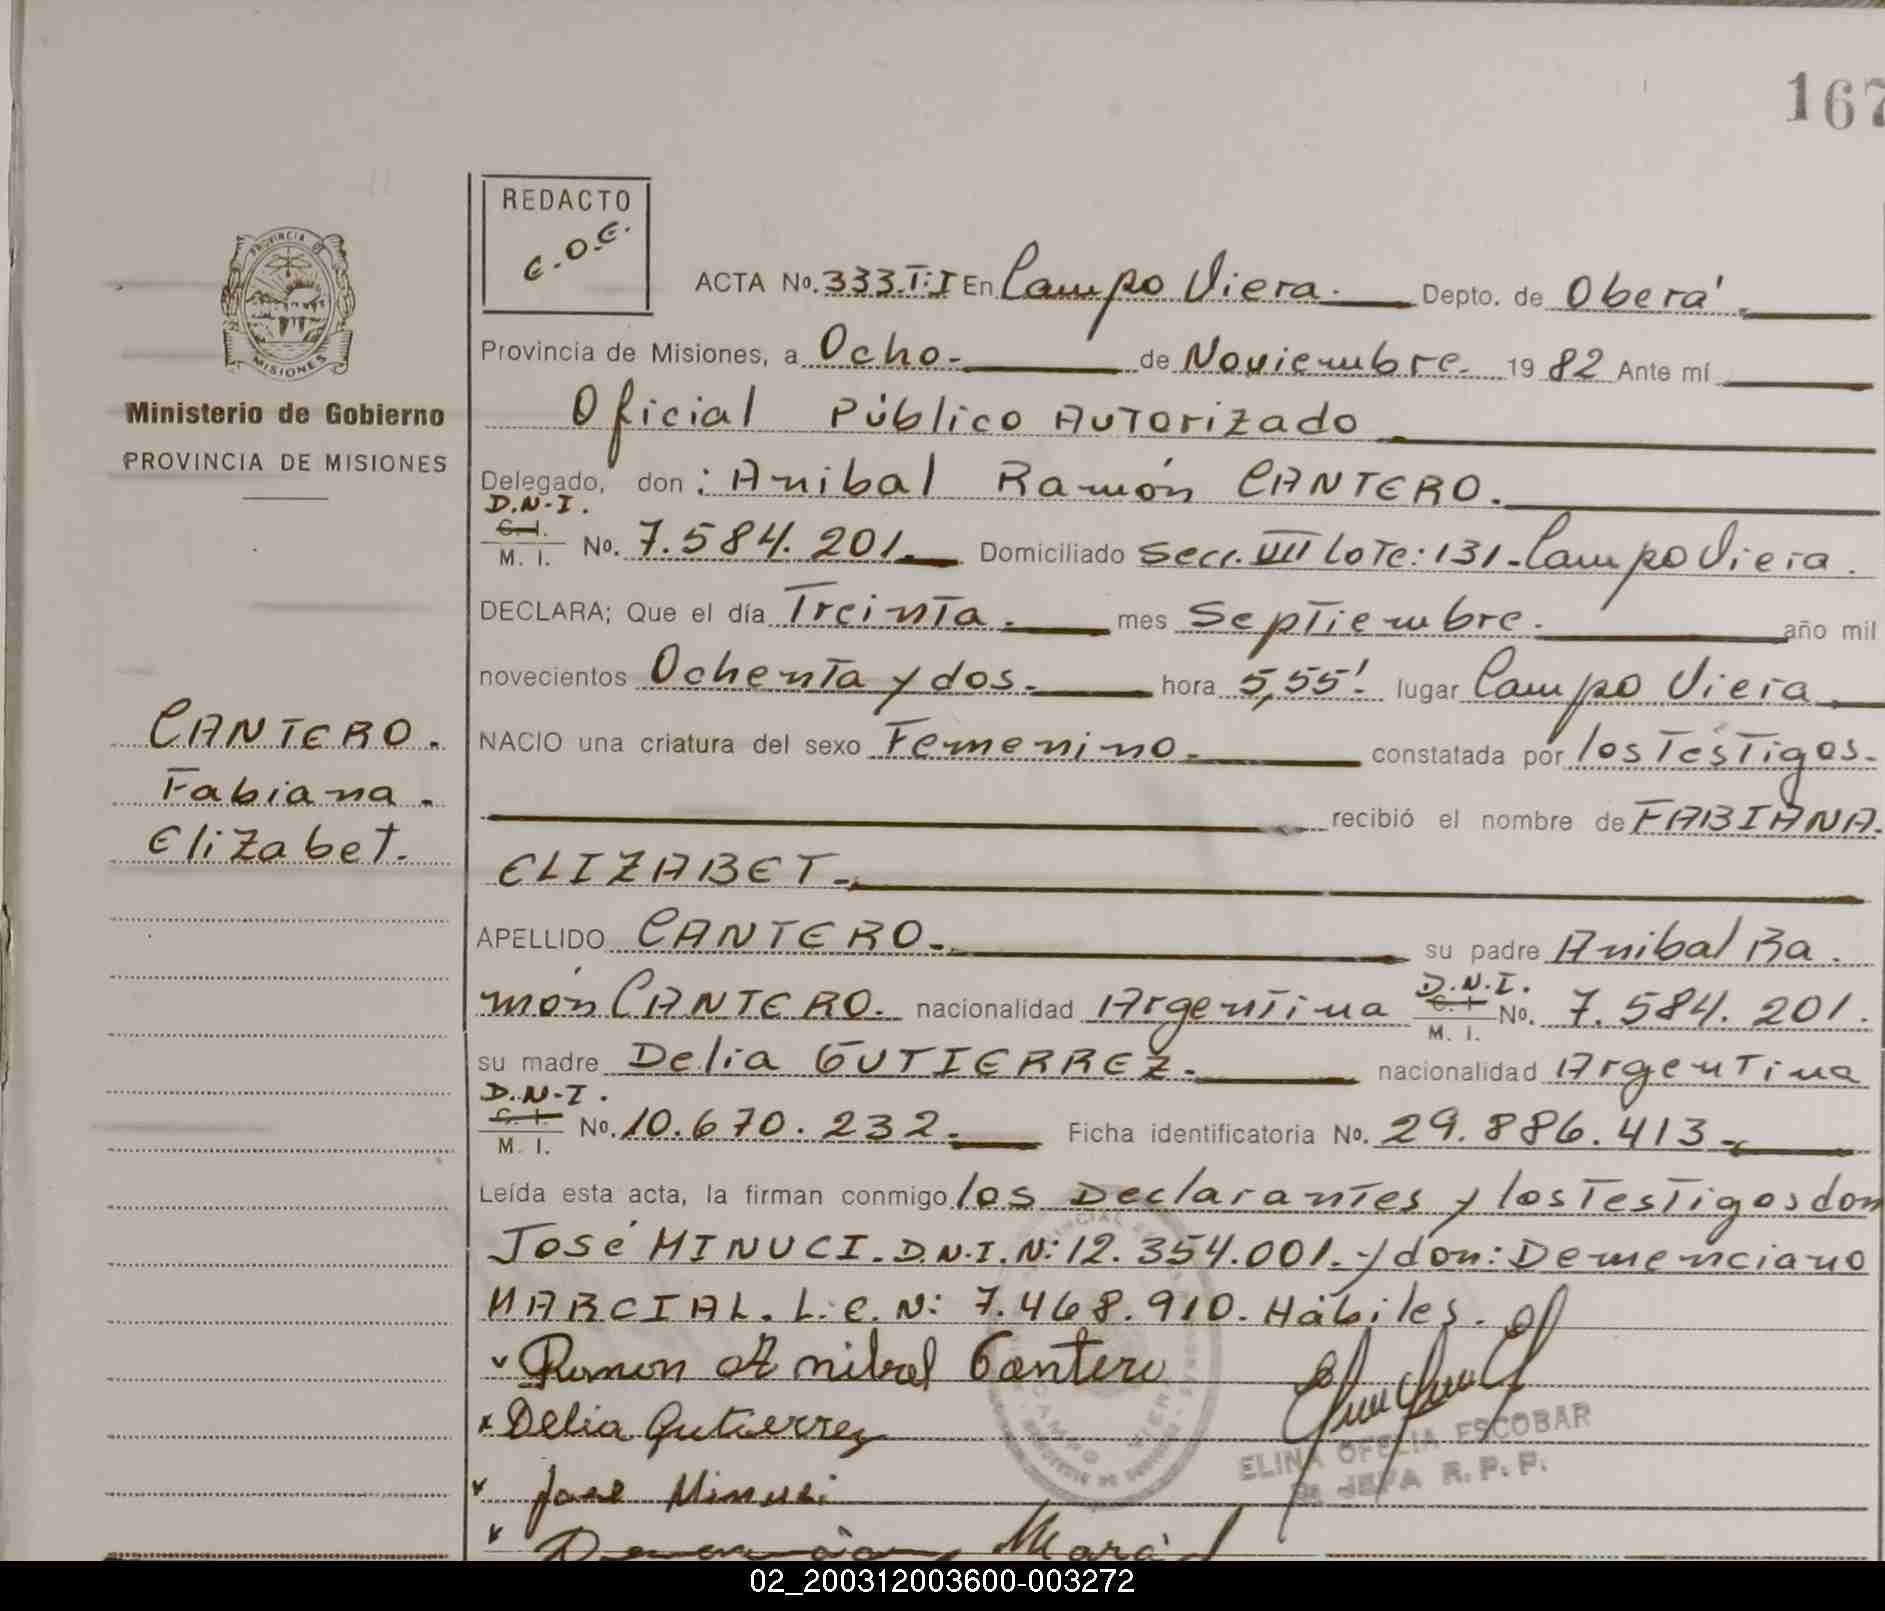 167
REDACTO
E.O.E.
PROVINCIA DE
MISIONES
Ministerio de Gobierno
PROVINCIA DE MISIONES
CANTERO.
Fabiana.
Elizabet.
ACTA No. 333.T:I En Campo Viera. Depto. de Oberá.
Provincia de Misiones, a Ocho. de Noviembre. 19 82 Ante mí
Oficial Público Autorizado
Delegado, don: Anibal Ramón CANTERO.
D.N.I.
C. I.
M. I. No. 7.584.201. Domiciliado Secc. VIII Lote: 131. Campo Viera.
DECLARA; Que el día Treinta. mes Septiembre. año mil
novecientos Ochenta y dos. hora 5,55'. lugar Campo Viera
NACIO una criatura del sexo Femenino. constatada por los Testigos.
recibió el nombre de FABIANA.
ELIZABET.
APELLIDO CANTERO. su padre Anibal Ra.
món CANTERO. nacionalidad Argentina D.N.I. C. I. M. I. No. 7.584.201.
su madre Delia GUTIERREZ. nacionalidad Argentina
D.N.I.
C. I.
M. I. No. 10.670.232. Ficha identificatoria No. 29.886.413.
Leída esta acta, la firman conmigo los Declarantes y los Testigos don
José MINUCI. D.N.I. N: 12.354.001. y don: Demenciano
MARCIAL. L.E. N: 7.468.910. Hábiles.
Ramon Anibal Cantero
Delia Gutierrez
Jose Minuci
ELINA OFELIA ESCOBAR
JEFA R.P.P.
CAMPO VIERA
02_200312003600-003272